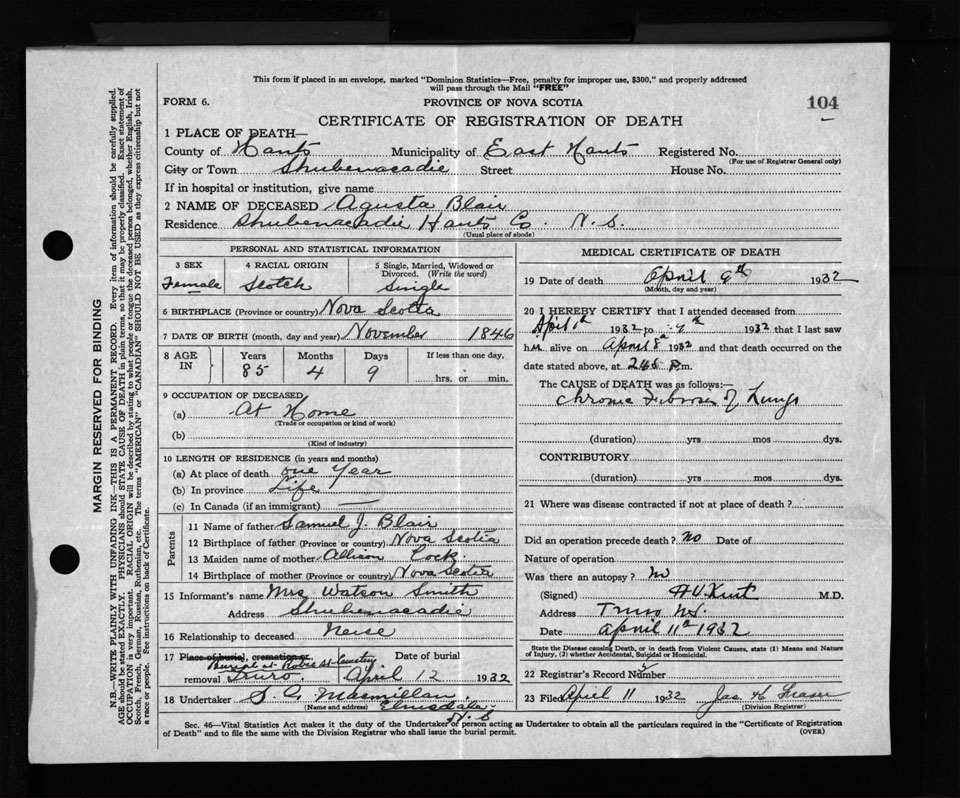 This form if placed in an envelope, marked "Dominion Statistics—Free, penalty for improper use, $300," and properly addressed
will pass through the Mail "FREE"
FORM 6.
PROVINCE OF NOVA SCOTIA
104
CERTIFICATE OF REGISTRATION OF DEATH
1 PLACE OF DEATH—
County of Hants Municipality of East Hants Registered No.
(For use of Registrar General only)
City or Town Shubenacadie Street House No.
If in hospital or institution, give name
2 NAME OF DECEASED Agusta Blair
Residence Shubenacadie Hants Co. N.S.
(Usual place of abode)
PERSONAL AND STATISTICAL INFORMATION
3 SEX 4 RACIAL ORIGIN 5 Single, Married, Widowed or
Divorced. (Write the word)
Female Scotch Single
6 BIRTHPLACE (Province or country) Nova Scotia
7 DATE OF BIRTH (month, day and year) November 1846
8 AGE IN Years Months Days If less than one day,
85 4 9 hrs. or min.
9 OCCUPATION OF DECEASED
(a) At Home
(Trade or occupation or kind of work)
(b)
(Kind of industry)
10 LENGTH OF RESIDENCE (in years and months)
(a) At place of death one Year
(b) In province Life
(c) In Canada (if an immigrant) —
Parents
11 Name of father Samuel J. Blair
12 Birthplace of father (Province or country) Nova Scotia
13 Maiden name of mother Allison Lock
14 Birthplace of mother (Province or country) Nova Scotia
15 Informant's name Mrs Watson Smith
Address Shubenacadie
16 Relationship to deceased Neise
17 Place of burial, cremation or Date of burial
Burial at Robie St Cemetery
removal Truro April 12 1932
18 Undertaker S. G. Macmillan
(Name and address) Elmsdale
N.S
MEDICAL CERTIFICATE OF DEATH
19 Date of death April 9th 1932
(Month, day and year)
20 I HEREBY CERTIFY that I attended deceased from
April 1932 to 9th 1932 that I last saw
h alive on April 8th 1932 and that death occurred on the
date stated above, at 245 P.m.
The CAUSE of DEATH was as follows:—
Chronic Fibrosis of Lungs
(duration) yrs mos dys.
CONTRIBUTORY
(duration) yrs mos dys.
21 Where was disease contracted if not at place of death?
Did an operation precede death? No Date of
Nature of operation
Was there an autopsy? No
(Signed) H V Kent M.D.
Address Truro N.S.
Date April 11th 1932
State the Disease causing Death, or in death from Violent Causes, state (1) Means and Nature
of Injury, (2) whether Accidental, Suicidal or Homicidal.
22 Registrar's Record Number
23 Filed April 11 1932 Jas H Fraser
(Division Registrar)
Sec. 46—Vital Statistics Act makes it the duty of the Undertaker or person acting as Undertaker to obtain all the particulars required in the "Certificate of Registration
of Death" and to file the same with the Division Registrar who shall issue the burial permit.
(OVER)
MARGIN RESERVED FOR BINDING
N.B—WRITE PLAINLY WITH UNFADING INK—THIS IS A PERMANENT RECORD. Every item of information should be carefully supplied.
AGE should be stated EXACTLY. PHYSICIANS should STATE CAUSE OF DEATH in plain terms, so that it may be properly classified. Exact statement of
OCCUPATION is very important. RACIAL ORIGIN will be described by stating to what people or tongue the deceased person belonged, whether English, Irish,
Scotch, French, German, Russian, Ruthenian, etc. The terms "AMERICAN" or "CANADIAN" SHOULD NOT BE USED as they express citizenship but not
a race or people. See instructions on back of Certificate.